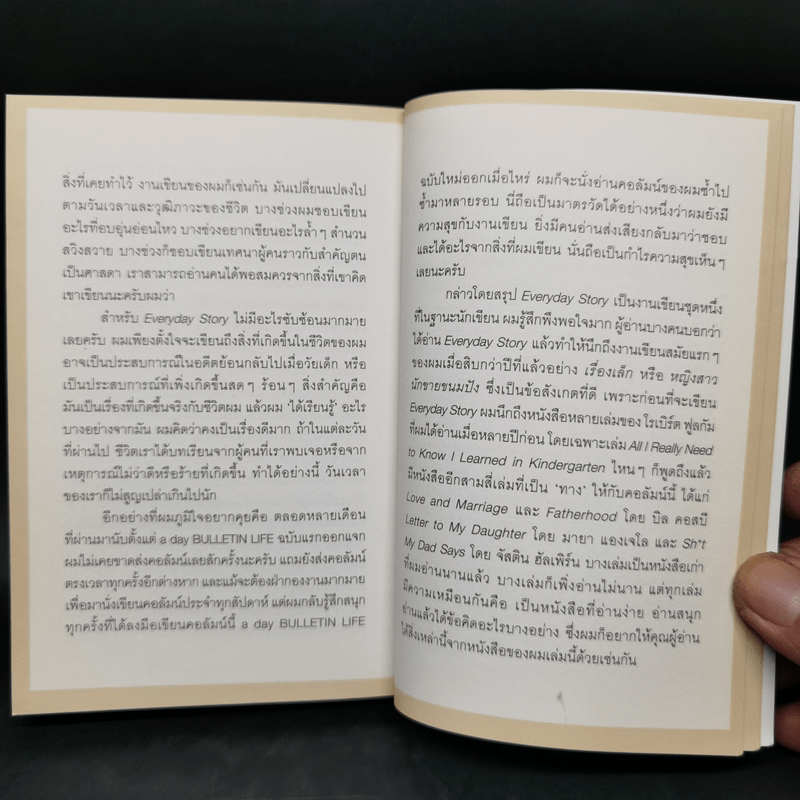 สิ่งที่เคยทำไว้ งานเขียนของผมก็เช่นกัน มันเปลี่ยนแปลงไป
ตามวันเวลาและวุฒิภาวะของชีวิต บางช่วงผมชอบเขียน
อะไรที่อบอุ่นอ่อนไหว บางช่วงอยากเขียนอะไรล้ำๆ สำนวน
สวิงสวาย บางช่วงก็ชอบเขียนเทศนาผู้คนราวกับสำคัญตน
เป็นศาสดา เราสามารถอ่านคนได้พอสมควรจากสิ่งที่เขาคิด
เขาเขียนนะครับผมว่า
สำหรับ Everyday Story ไม่มีอะไรซับซ้อนมากมาย
เลยครับ ผมเพียงตั้งใจจะเขียนถึงสิ่งที่เกิดขึ้นในชีวิตของผม
อาจเป็นประสบการณ์ในอดีตย้อนกลับไปเมื่อวัยเด็ก หรือ
เป็นประสบการณ์ที่เพิ่งเกิดขึ้นสดๆ ร้อนๆ สิ่งสำคัญคือ
มันเป็นเรื่องที่เกิดขึ้นจริงกับชีวิตผม แล้วผม 'ได้เรียนรู้' อะไร
บางอย่างจากมัน ผมคิดว่าคงเป็นเรื่องดีมาก ถ้าในแต่ละวัน
ที่ผ่านไป ชีวิตเราได้บทเรียนจากผู้คนที่เราพบเจอหรือจาก
เหตุการณ์ไม่ว่าดีหรือร้ายที่เกิดขึ้น ทำได้อย่างนี้ วันเวลา
ของเราก็ไม่สูญเปล่าเกินไปนัก
อีกอย่างที่ผมภูมิใจอยากคุยคือ ตลอดหลายเดือน
ที่ผ่านมานับตั้งแต่ a day BULLETIN LIFE ฉบับแรกออกแจก
ผมไม่เคยขาดส่งคอลัมน์เลยสักครั้งนะครับ แถมยังส่งคอลัมน์
ตรงเวลาทุกครั้งอีกต่างหาก และแม้จะต้องฝ่ากองงานมากมาย
เพื่อมานั่งเขียนคอลัมน์ประจำทุกสัปดาห์ แต่ผมกลับรู้สึกสนุก
ทุกครั้งที่ได้ลงมือเขียนคอลัมน์นี้ a day BULLETIN LIFE
ฉบับใหม่ออกเมื่อไหร่ ผมก็จะนั่งอ่านคอลัมน์ของผมซ้ำไป
ซ้ำมาหลายรอบ นี่ถือเป็นมาตรวัดได้อย่างหนึ่งว่าผมยังมี
ความสุขกับงานเขียน ยิ่งมีคนอ่านส่งเสียงกลับมาว่าชอบ
และได้อะไรจากสิ่งที่ผมเขียน นั่นถือเป็นกำไรความสุขเห็นๆ
เลยนะครับ
กล่าวโดยสรุป Everyday Story เป็นงานเขียนชุดหนึ่ง
ที่ในฐานะนักเขียน ผมรู้สึกพึงพอใจมาก ผู้อ่านบางคนบอกว่า
ได้อ่าน Everyday Story แล้วทำให้นึกถึงงานเขียนสมัยแรกๆ
ของผมเมื่อสิบกว่าปีที่แล้วอย่าง เรื่องเล็ก หรือ หญิงสาว
นักขายขนมปัง ซึ่งเป็นข้อสังเกตที่ดี เพราะก่อนที่จะเขียน
Everyday Story ผมนึกถึงหนังสือหลายเล่มของโรเบิร์ต ฟูลกัม
ที่ผมได้อ่านเมื่อหลายปีก่อน โดยเฉพาะเล่ม All I Really Need
to Know I Learned in Kindergarten ไหนๆ ก็พูดถึงแล้ว
มีหนังสืออีกสามสี่เล่มที่เป็น 'ทาง' ให้กับคอลัมน์นี้ ได้แก่
Love and Marriage และ Fatherhood โดย บิล คอสบี
Letter to My Daughter โดย มายา แองเจโล และ Sh*t
My Dad Says โดย จัสติน ฮัลเพิร์น บางเล่มเป็นหนังสือเก่า
ที่ผมอ่านนานแล้ว บางเล่มก็เพิ่งอ่านไม่นาน แต่ทุกเล่ม
มีความเหมือนกันคือ เป็นหนังสือที่อ่านง่าย อ่านสนุก
อ่านแล้วได้ข้อคิดอะไรบางอย่าง ซึ่งผมก็อยากให้คุณผู้อ่าน
ได้สิ่งเหล่านี้จากหนังสือของผมเล่มนี้ด้วยเช่นกัน